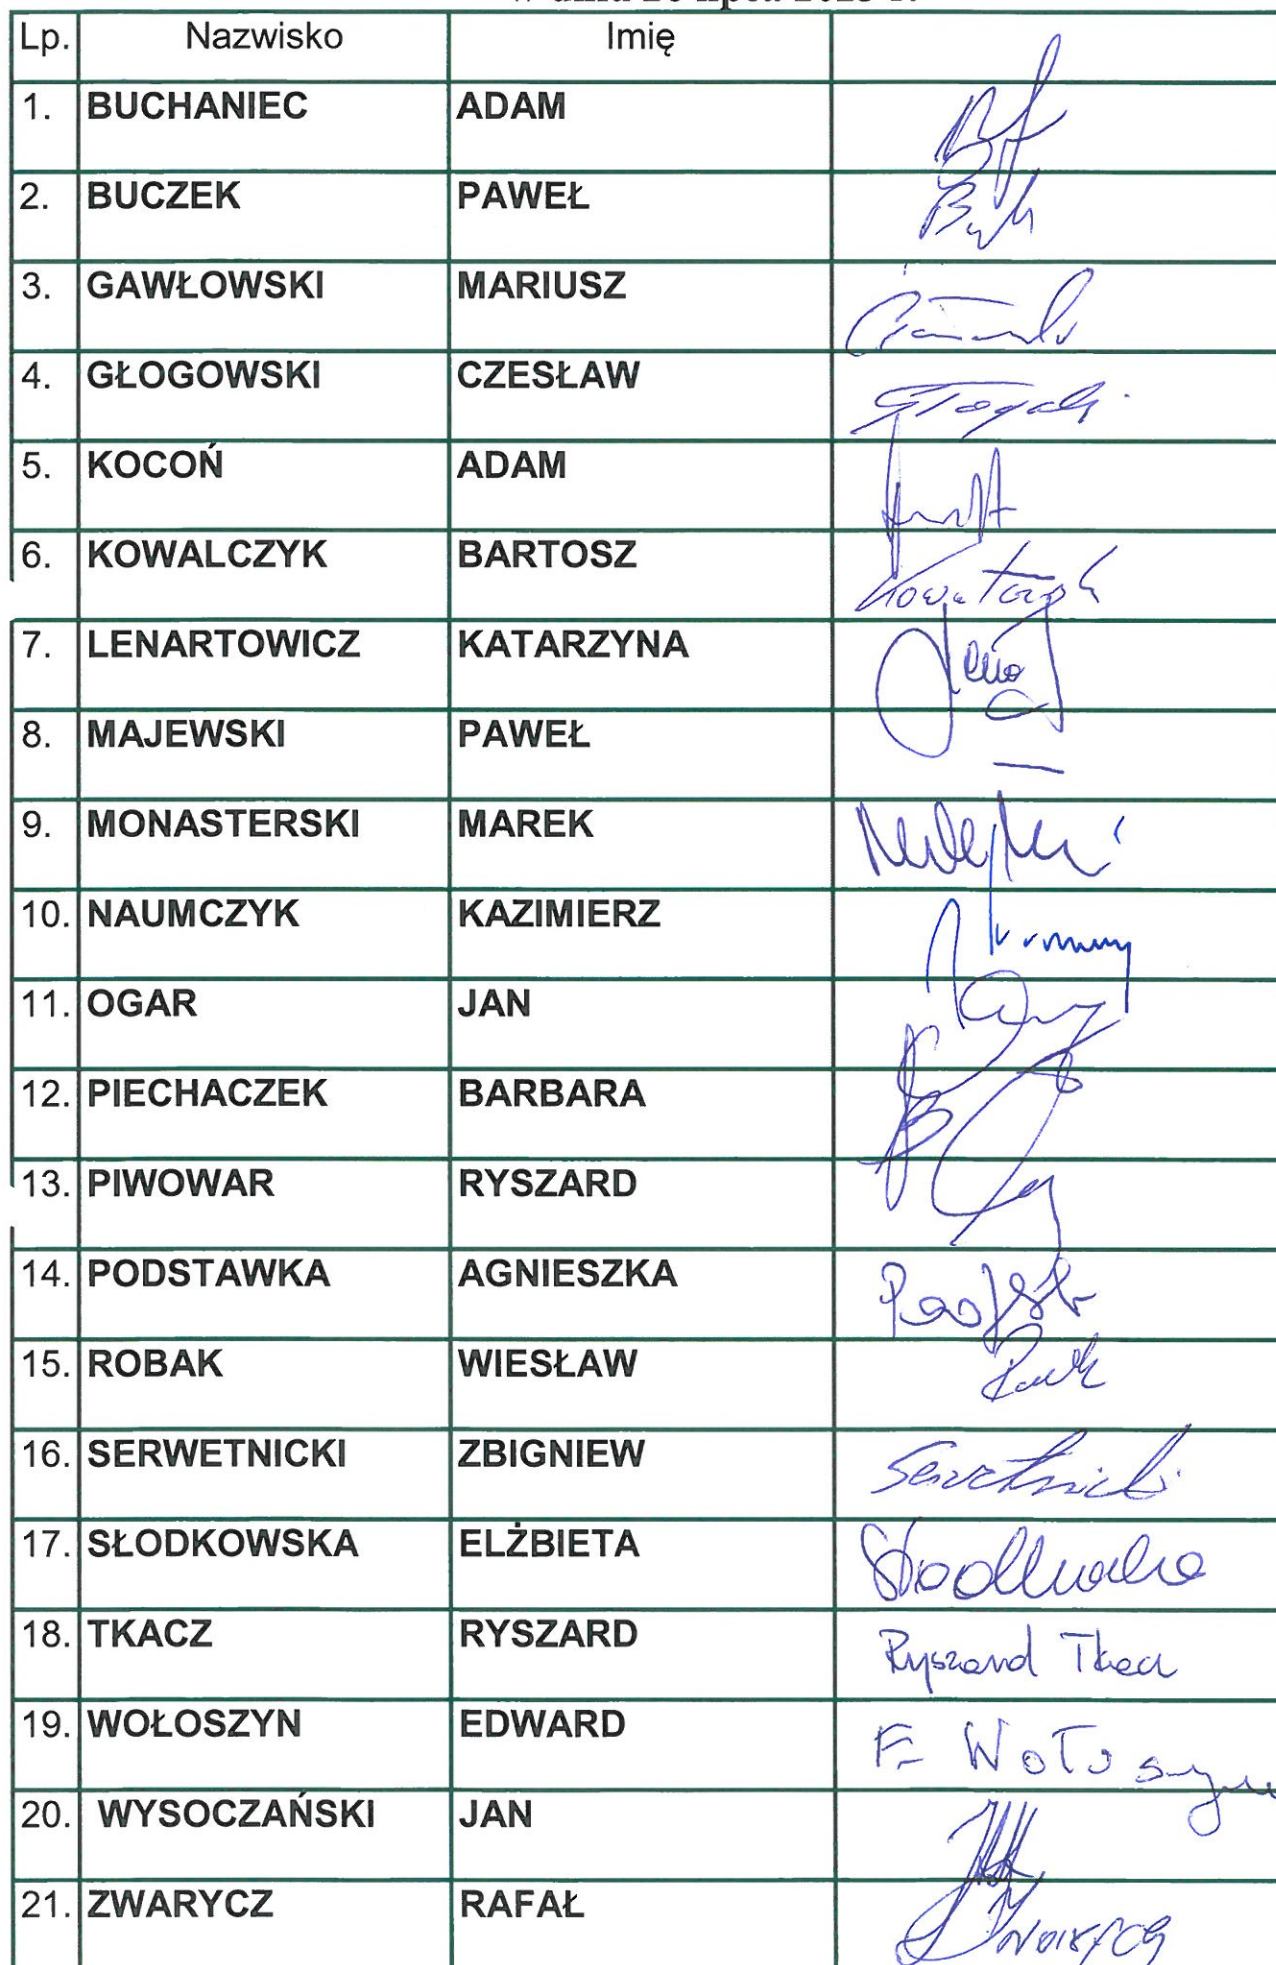 Lp. Nazwisko Imię
1. BUCHANIEC ADAM
2. BUCZEK PAWEŁ
3. GAWŁOWSKI MARIUSZ
4. GŁOGOWSKI CZESŁAW
5. KOCOŃ ADAM
6. KOWALCZYK BARTOSZ Kowalczyk
7. LENARTOWICZ KATARZYNA
8. MAJEWSKI PAWEŁ —
9. MONASTERSKI MAREK
10. NAUMCZYK KAZIMIERZ
11. OGAR JAN
12. PIECHACZEK BARBARA
13. PIWOWAR RYSZARD
14. PODSTAWKA AGNIESZKA
15. ROBAK WIESŁAW
16. SERWETNICKI ZBIGNIEW Serwetnicki
17. SŁODKOWSKA ELŻBIETA
18. TKACZ RYSZARD Ryszard Tkacz
19. WOŁOSZYN EDWARD E. Wołoszyn
20. WYSOCZAŃSKI JAN
21. ZWARYCZ RAFAŁ